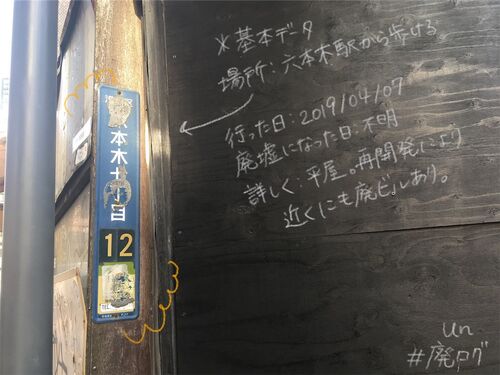 ※基本データ
場所:六本木駅から歩ける
行った日:2019/04/07
廃墟になった日:不明
詳しく:平屋。再開発により
近くにも廃ビルあり。
本木
丁目
12
un
#廃ログ